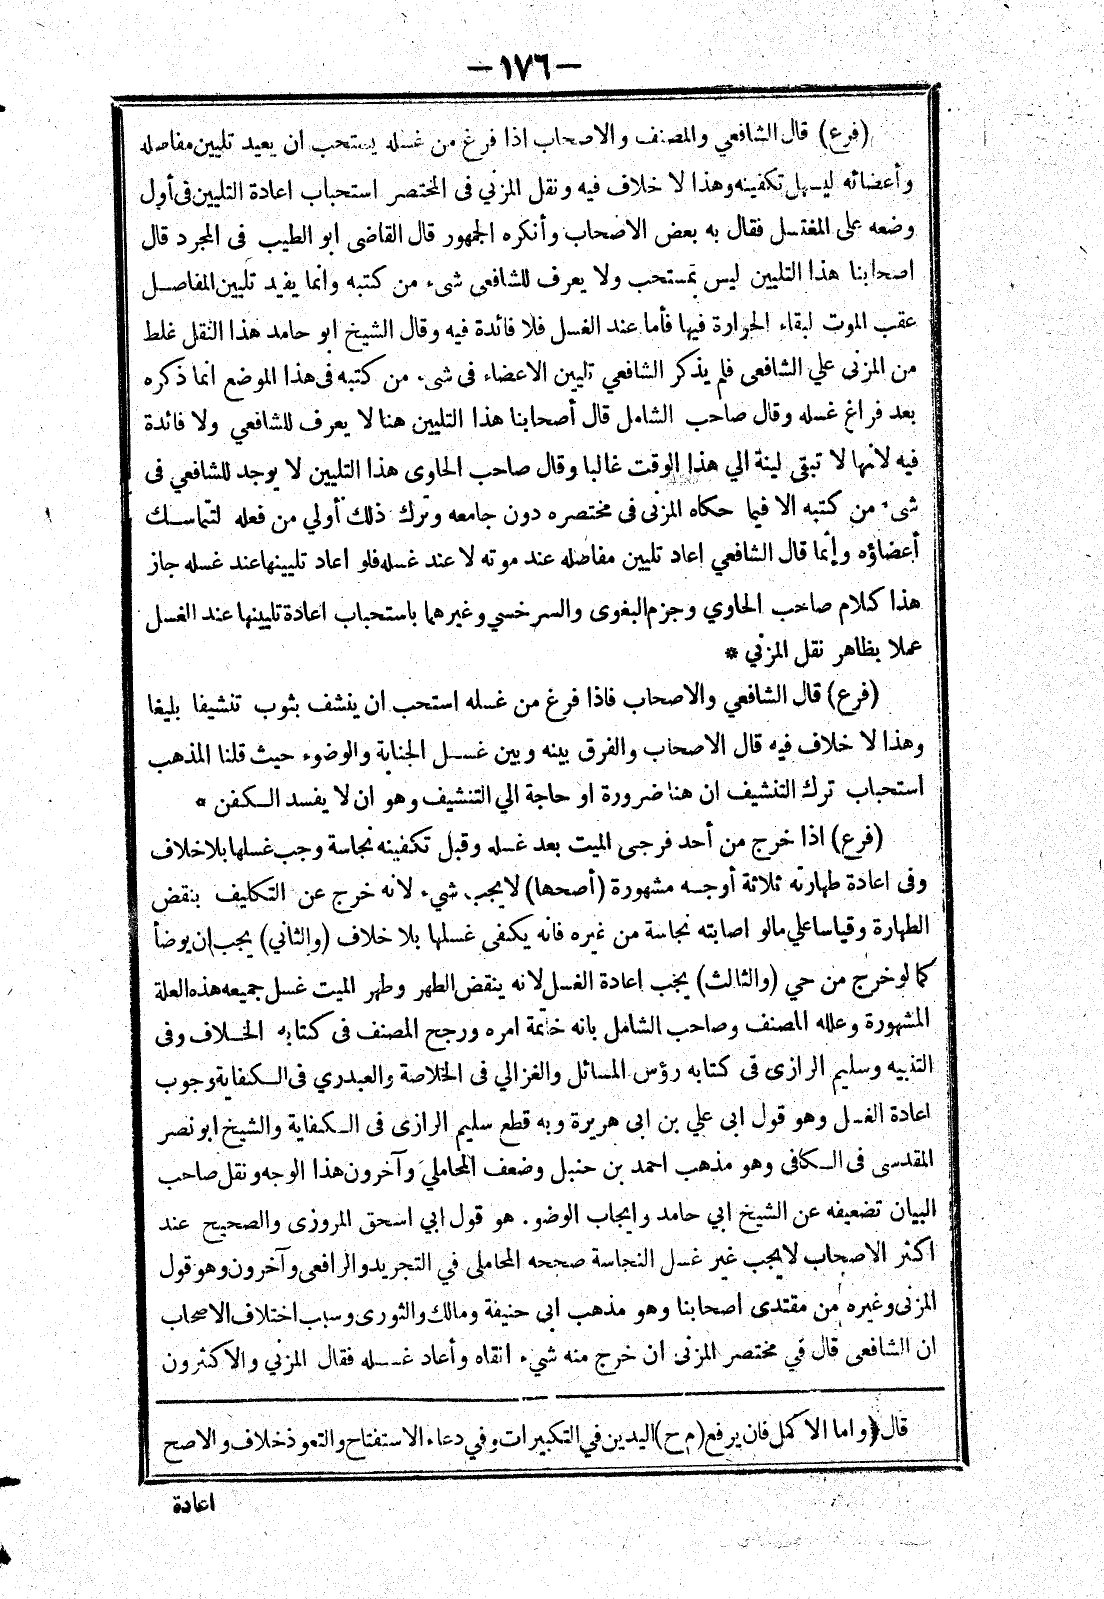 — ١٧٦ —
(فرع) قال الشافعي والمصنف والاصحاب اذا فرغ من غسله يستحب ان يعيد تليين مفاصله
وأعضائه ليسهل تكفينه وهذا لا خلاف فيه ونقل المزني فى المختصر استحباب اعادة التليين فى أول
وضعه على المغتسل فقال به بعض الاصحاب وأنكره الجمهور قال القاضى ابو الطيب فى المجرد قال
اصحابنا هذا التليين ليس بمستحب ولا يعرف للشافعى شىء من كتبه وانما يفيد تليين المفاصل
عقب الموت لبقاء الحرارة فيها فأما عند الغسل فلا فائدة فيه وقال الشيخ ابو حامد هذا النقل غلط
من المزنى علي الشافعى فلم يذكر الشافعي تليين الاعضاء فى شىء من كتبه فى هذا الموضع انما ذكره
بعد فراغ غسله وقال صاحب الشامل قال أصحابنا هذا التليين هنا لا يعرف للشافعي ولا فائدة
فيه لانها لا تبقى لينة الي هذا الوقت غالبا وقال صاحب الحاوى هذا التليين لا يوجد للشافعي فى
شىء من كتبه الا فيما حكاه المزنى فى مختصره دون جامعه وترك ذلك أولي من فعله لتماسك
أعضاؤه وإنما قال الشافعي اعاد تليين مفاصله عند موته لا عند غسله فلو اعاد تليينها عند غسله جاز
هذا كلام صاحب الحاوي وجزم البغوى والسرخسي وغيرهما باستحباب اعادة تليينها عند الغسل
عملا بظاهر نقل المزني *
(فرع) قال الشافعي والاصحاب فاذا فرغ من غسله استحب ان ينشف بثوب تنشيفا بليغا
وهذا لا خلاف فيه قال الاصحاب والفرق بينه وبين غسل الجنابة والوضوء حيث قلنا المذهب
استحباب ترك التنشيف ان هنا ضرورة او حاجة الي التنشيف وهو ان لا يفسد الكفن *
(فرع) اذا خرج من أحد فرجى الميت بعد غسله وقبل تكفينه نجاسة وجب غسلها بلا خلاف
وفى اعادة طهارته ثلاثة أوجه مشهورة (أصحها) لا يجب شيء لانه خرج عن التكليف بنقض
الطهارة وقياسا علي مالو اصابته نجاسة من غيره فانه يكفى غسلها بلا خلاف (والثاني) يجب ان يوضأ
كما لو خرج من حي (والثالث) يجب اعادة الغسل لانه ينقض الطهر وطهر الميت غسل جميعه هذه العلة
المشهورة وعلله المصنف وصاحب الشامل بانه خاتمة امره ورجح المصنف فى كتابه الخلاف وفى
التنبيه وسليم الرازى فى كتابه رؤس المسائل والغزالي فى الخلاصة والعبدري فى الكفاية وجوب
اعادة الغسل وهو قول ابى علي بن ابى هريرة وبه قطع سليم الرازى فى الكفاية والشيخ ابو نصر
المقدسى فى الكافى وهو مذهب احمد بن حنبل وضعف المحاملي وآخرون هذا الوجه ونقل صاحب
البيان تضعيفه عن الشيخ ابي حامد وايجاب الوضوء هو قول ابي اسحق المروزى والصحيح عند
اكثر الاصحاب لا يجب غير غسل النجاسة صححه المحاملى في التجريد والرافعى وآخرون وهو قول
المزنى وغيره من مقتدى اصحابنا وهو مذهب ابى حنيفة ومالك والثورى وسبب اختلاف الاصحاب
ان الشافعى قال في مختصر المزنى ان خرج منه شيء انقاه وأعاد غسله فقال المزني والاكثرون
قال ﴿واما الاكمل فان يرفع (م ح) اليدين في التكبيرات وفي دعاء الاستفتاح والتعوذ خلاف والاصح
اعادة